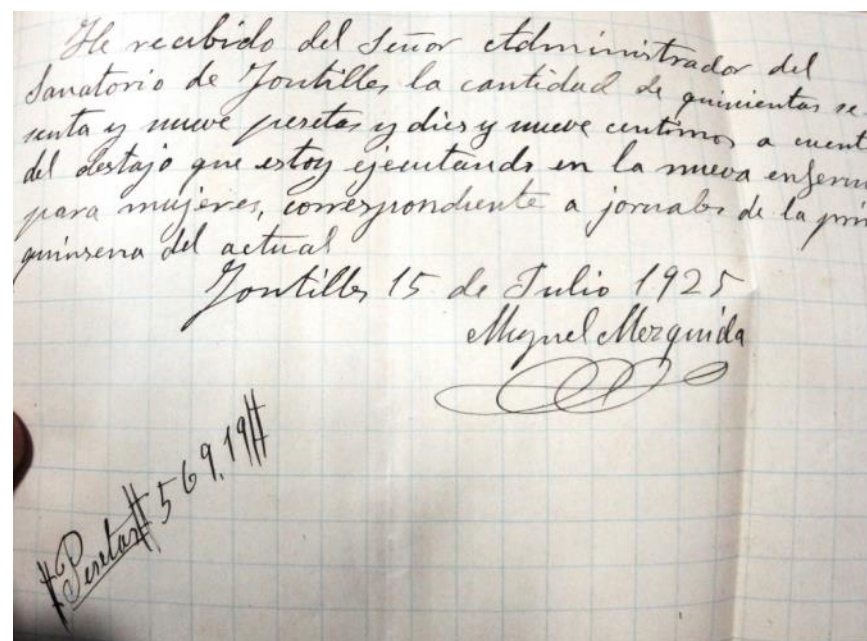 He recibido del Señor Administrador del
Sanatorio de Fontilles la cantidad de quinientas se
senta y nueve pesetas y dies y nueve centimos a cuent
del destajo que estoy ejecutando en la nueva enferm
para mujeres, correspondiente a jornales de la prim
quinsena del actual
Fontilles 15 de Julio 1925
Miguel Mezquida
#Pesetas# 569,19#